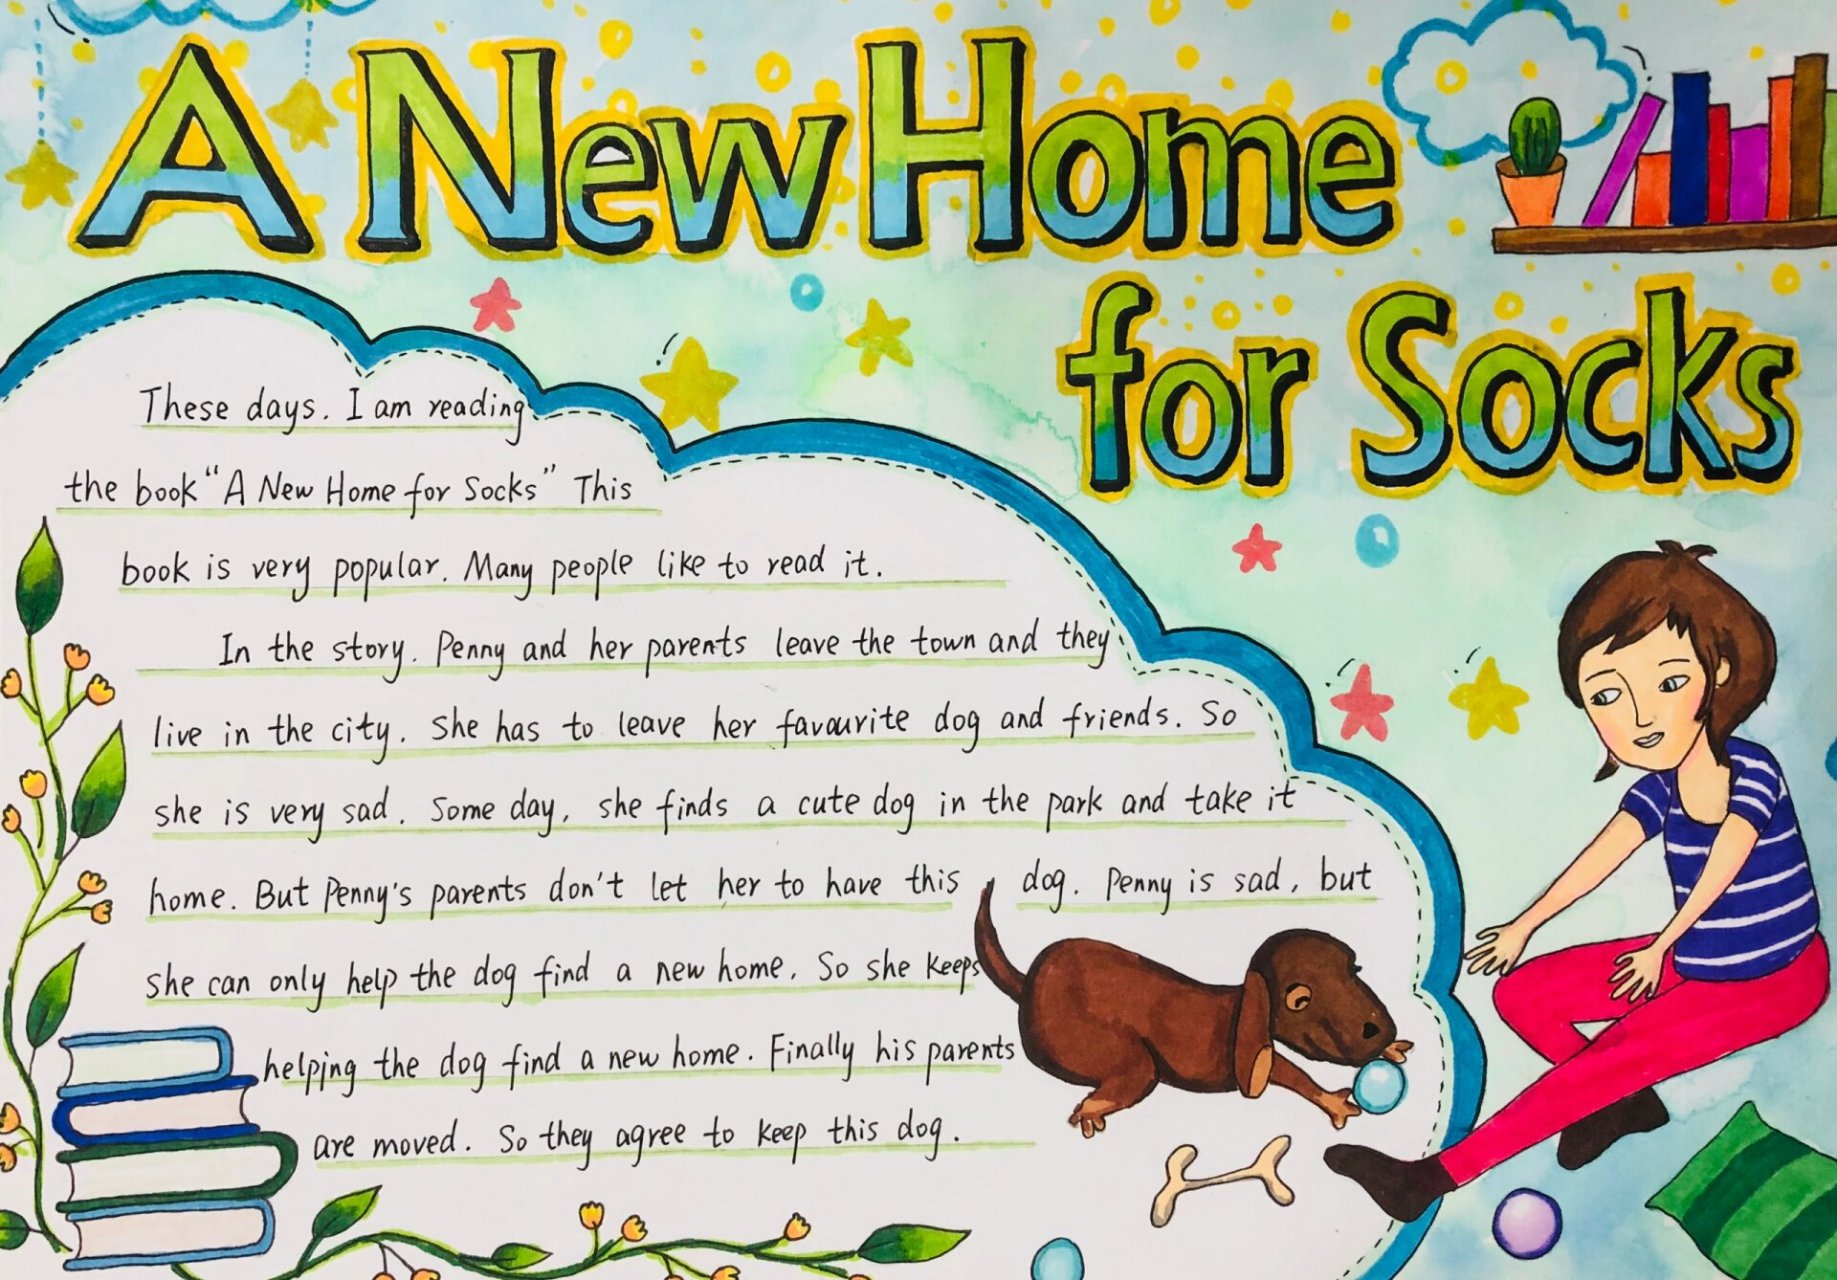 A New Home
for Socks
These days. I am reading
the book "A New Home for Socks" This
book is very popular. Many people like to read it.
In the story. Penny and her parents leave the town and they
live in the city. She has to leave her favourite dog and friends. So
she is very sad. Some day, she finds a cute dog in the park and take it
home. But Penny's parents don't let her to have this dog. Penny is sad, but
she can only help the dog find a new home. So she keeps
helping the dog find a new home. Finally his parents
are moved. So they agree to keep this dog.